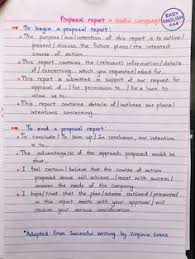 Proposal report → Useful Language
EASY ENGLISH 444
→ To begin a proposal report:
* The purpose/aim/intention of this report is to outline/
present/discuss the future plans/the intended
course of action...
* This report contains the (relevant) information/details
of/concerning... which you requested/asked for...
* This report is submitted in support of our request for
approval of/for permission to.../for a loan to
allow us to...
* This report contains details of/outlines our plans/
intentions concerning...
→ To end a proposal report:
* To conclude/To sum up/In conclusion, our intention
is to...
The advantage(s) of the approach proposed would be
that...
* I feel certain/believe that the course of action
proposed above will achieve/meet with success/
answer the needs of the company.
* I hope/trust that the plan/scheme outlined/presented
in this report meets with your approval/will
receive your serious consideration.
*Adapted from Successful Writing by Virginia Evans